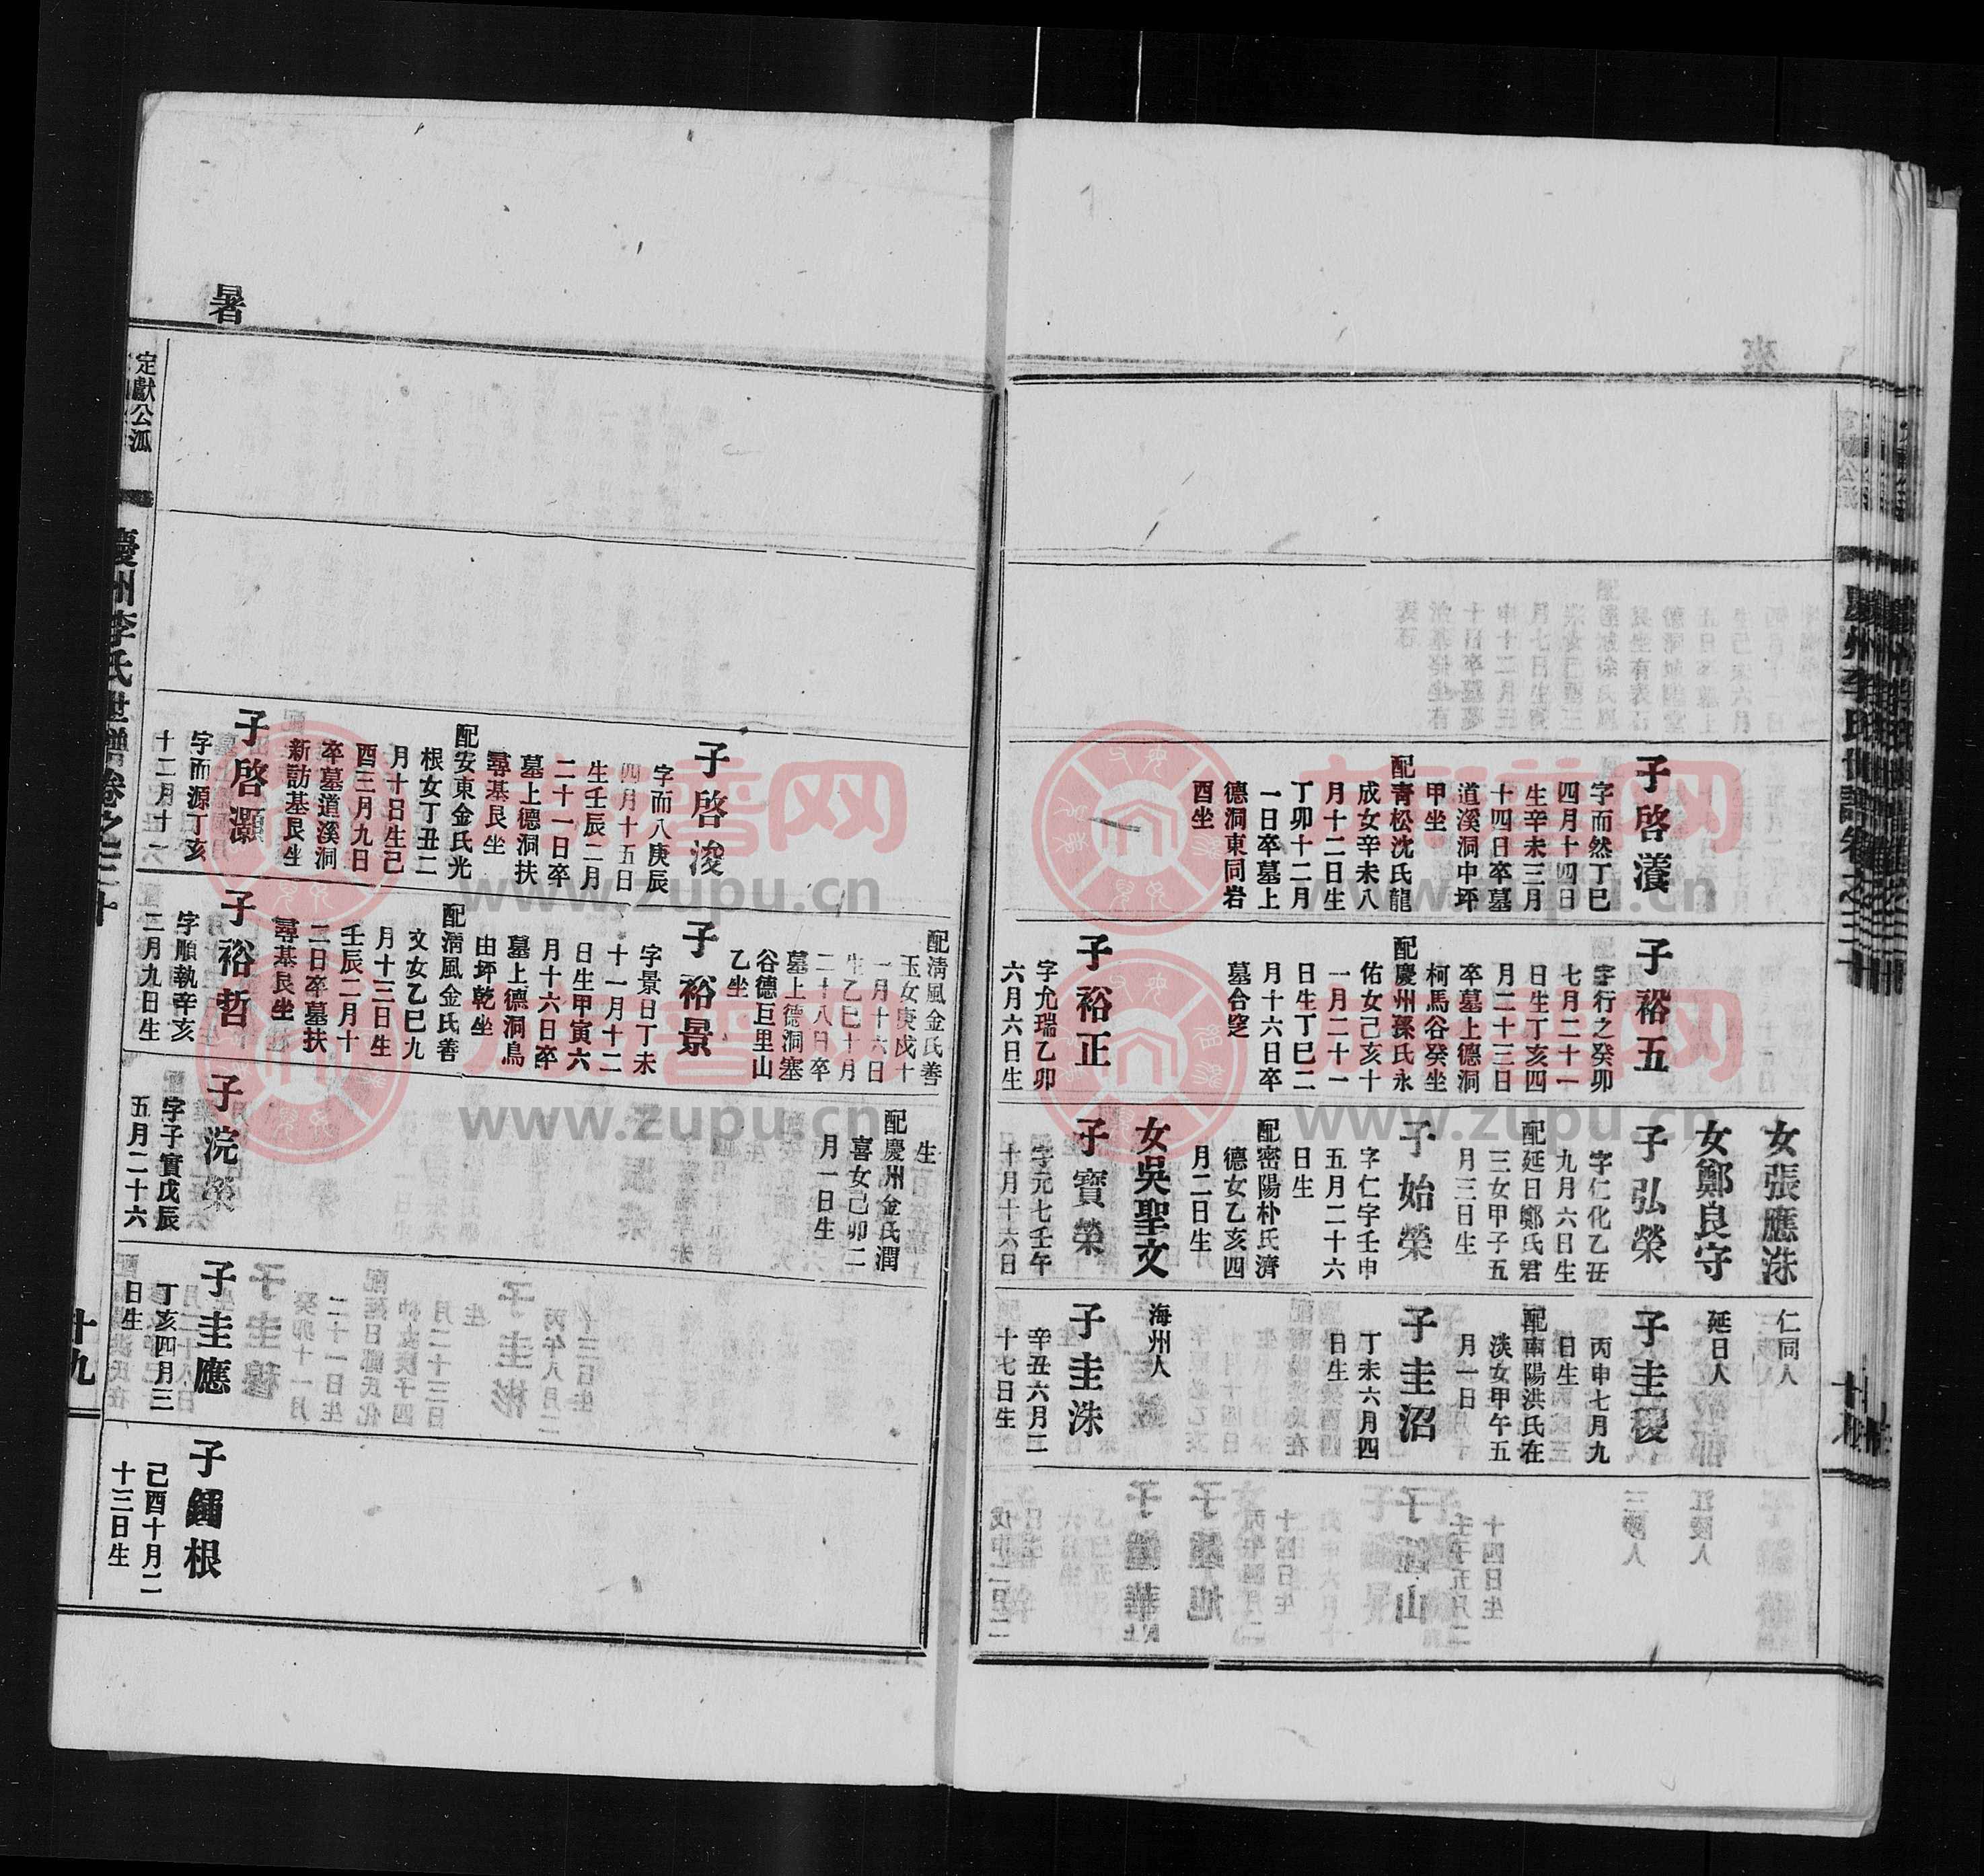 來
子啓瀁
字而然丁巳
四月十四日
生辛未三月
十四日卒墓
道溪洞中坪
甲坐
配靑松沈氏龍
成女辛未八
月十二日生
丁卯十二月
一日卒墓上
德洞東同岩
酉坐
子裕五
字行之癸卯
七月二十一
日生丁亥四
月二十三日
卒墓上德洞
柯馬谷癸坐
配慶州孫氏永
佑女己亥十
一月二十一
日生丁巳二
月十六日卒
墓合窆
子裕正
字允瑞乙卯
六月六日生
女張應洙
女鄭良守
子弘榮
字仁化乙丑
九月六日生
配延日鄭氏君
三女甲子五
月三日生
子始榮
字仁字壬申
五月二十六
日生
配密陽朴氏濟
德女乙亥四
月二日生
女吳聖文
子寶榮
字元七壬午
十月十六日
仁同人
延日人
子圭稷
丙申七月九
日生
配南陽洪氏在
淡女甲午五
月一日
子圭沼
丁未六月四
日生
海州人
子圭洙
辛丑六月二
十七日生
暑
子啓浚
字而八庚辰
四月十五日
生壬辰二月
二十一日卒
墓上德洞扶
尋基艮坐
配安東金氏光
根女丁丑二
月十日生己
酉三月九日
卒墓道溪洞
新訪基艮坐
子啓灝
字而源丁亥
十二月十六
配淸風金氏善
玉女庚戌十
一月十六日
生乙巳十月
二十八日卒
墓上德洞塞
谷德巨里山
乙坐
子裕景
字景日丁未
十一月十二
日生甲寅六
月十六日卒
墓上德洞鳥
由坪乾坐
配淸風金氏善
文女乙巳九
月十三日生
壬辰二月十
二日卒墓扶
尋基艮坐
子裕哲
字順執辛亥
三月九日生
生
配慶州金氏潤
喜女己卯二
月一日生
子浣榮
字子實戊辰
五月二十六
子圭應
丁亥四月三
日生
子鍾根
己酉十月二
十三日生
定獻公派
慶州李氏世譜卷之三十
十九